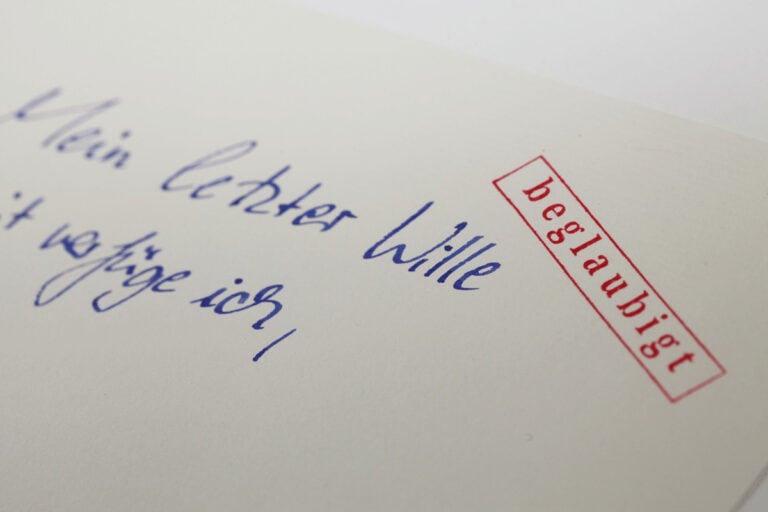 Mein letzter Wille
it verfüge ich,
beglaubigt